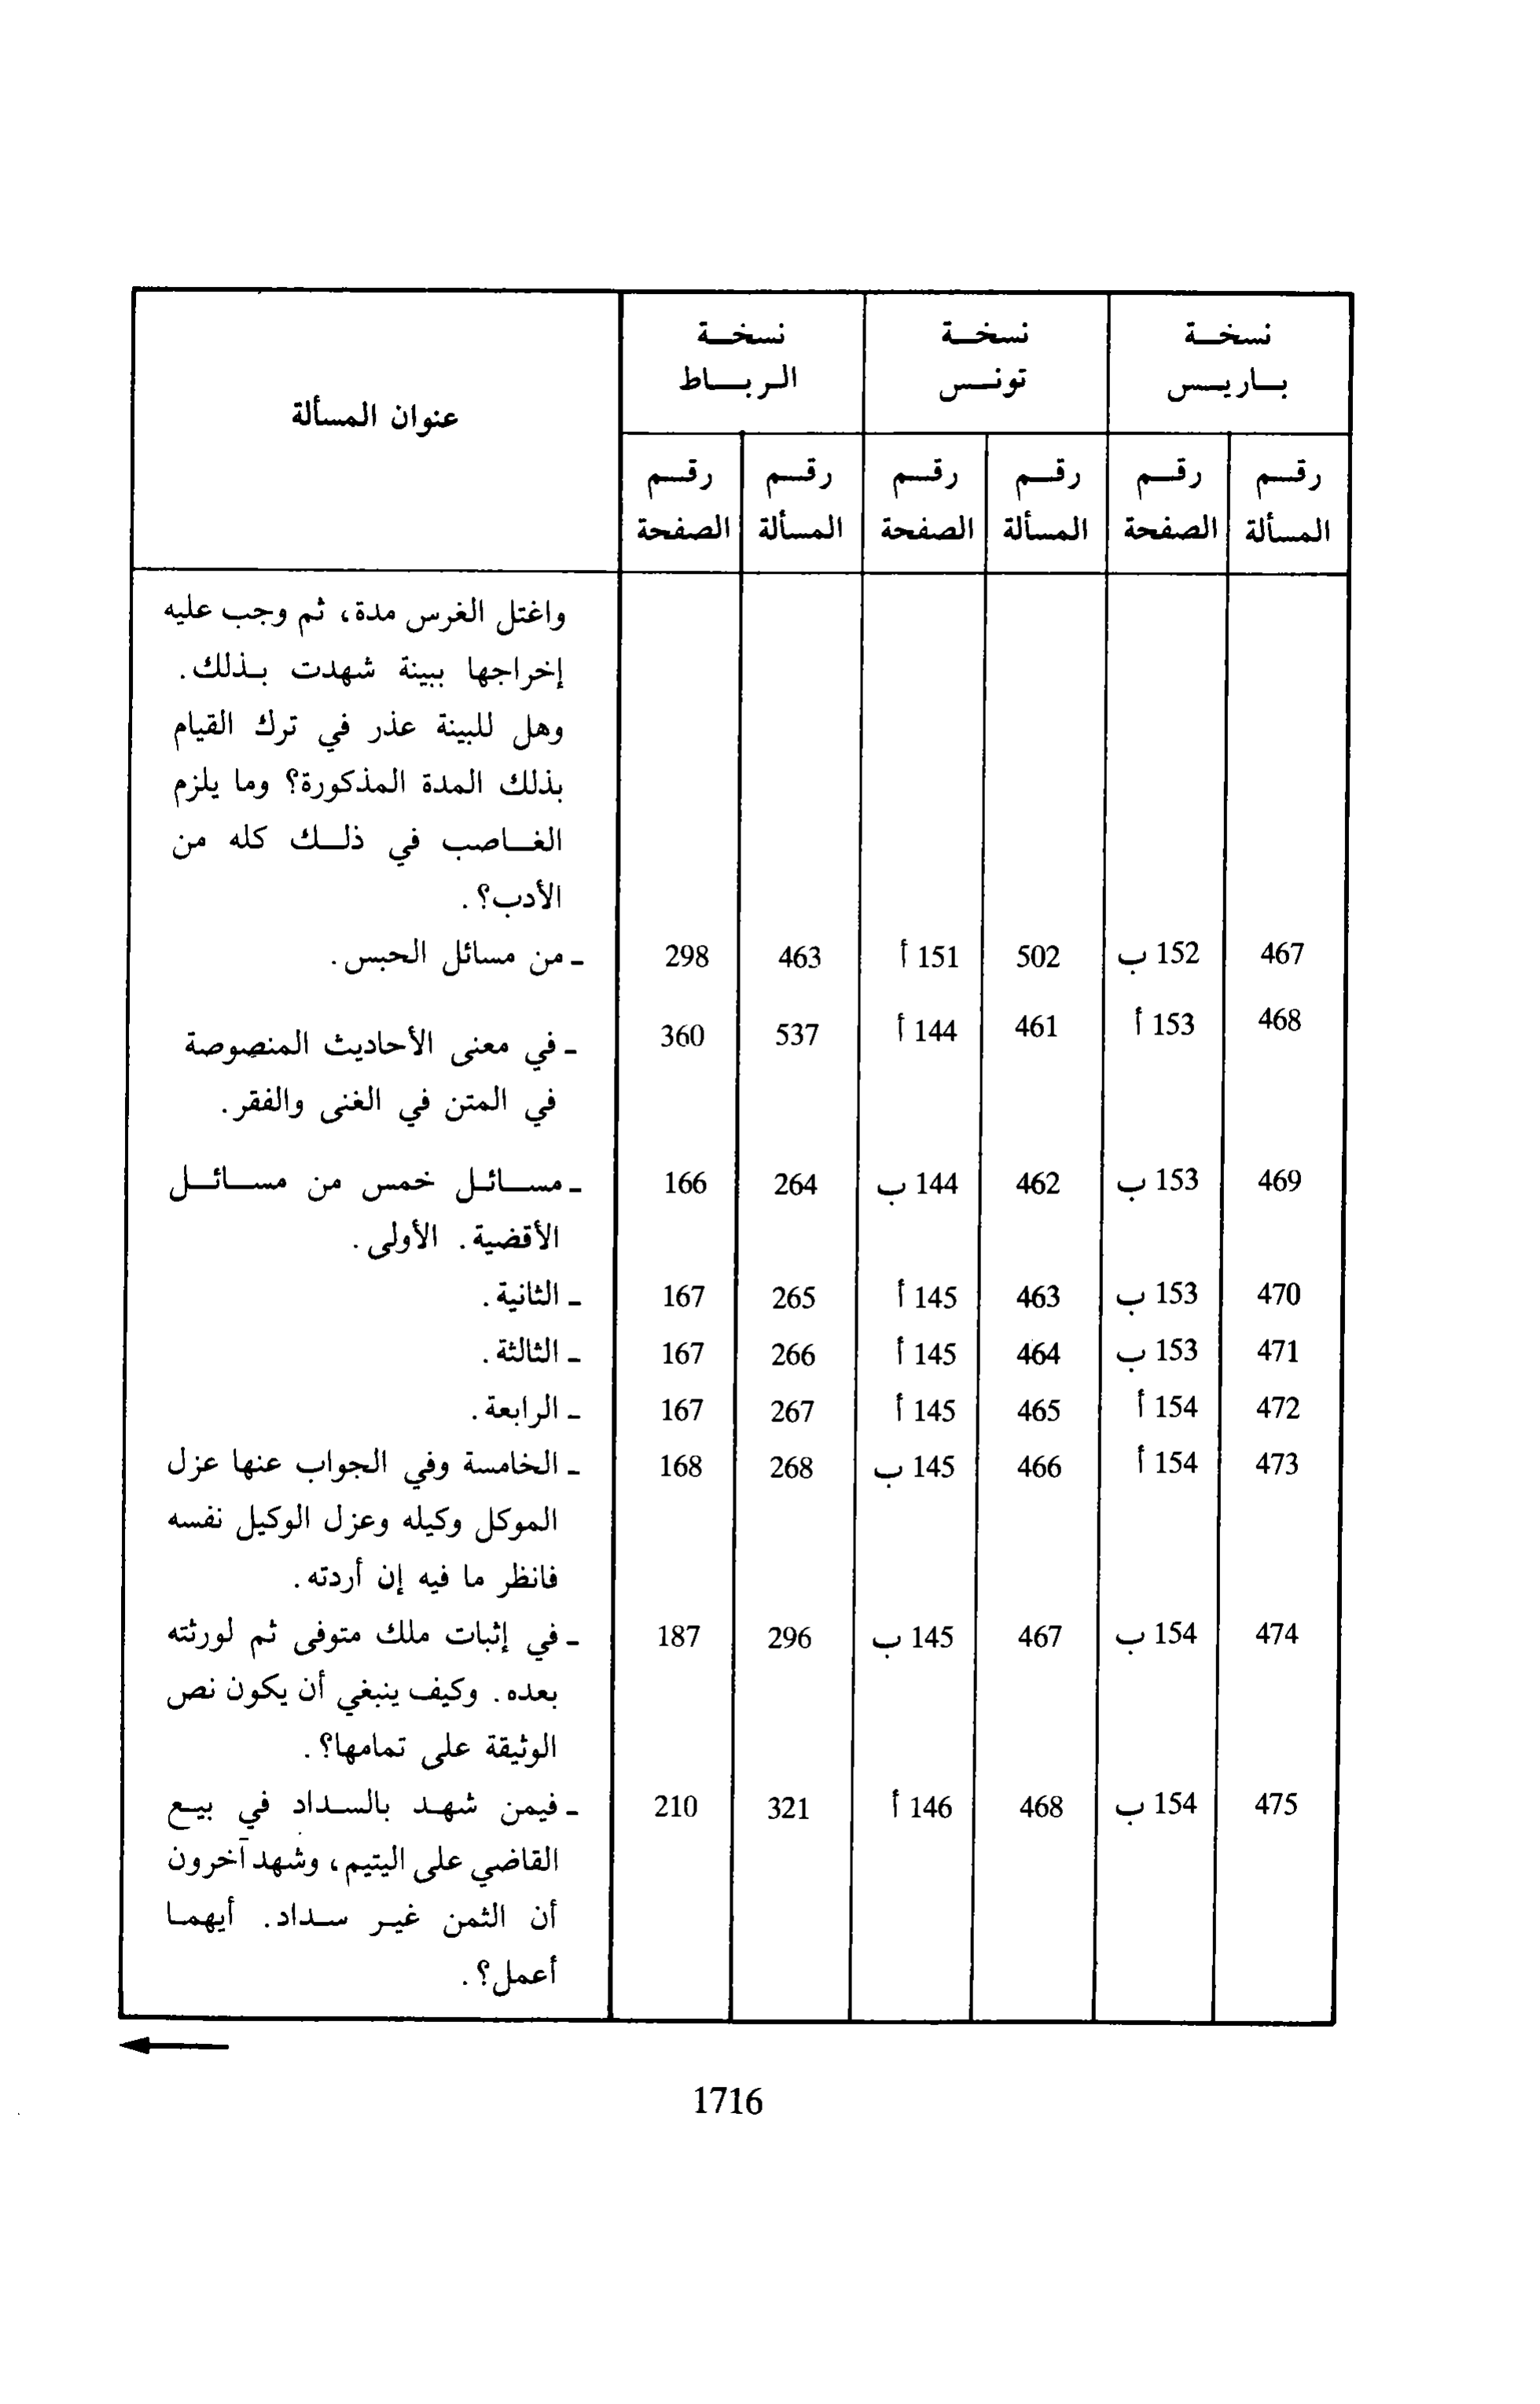 نسخة نسخة نسخة
باريس تونس الرباط
عنوان المسألة
رقم رقم رقم رقم رقم رقم
المسألة الصفحة المسألة الصفحة المسألة الصفحة
واغتل الغرس مدة، ثم وجب عليه
إخراجها ببينة شهدت بذلك.
وهل للبينة عذر في ترك القيام
بذلك المدة المذكورة؟ وما يلزم
الغاصب في ذلك كله من
الأدب؟.
467 152 ب 502 151 أ 463 298 - من مسائل الحبس.
468 153 أ 461 144 أ 537 360 - في معنى الأحاديث المنصوصة
في المتن في الغنى والفقر.
469 153 ب 462 144 ب 264 166 - مسائل خمس من مسائل
الأقضية. الأولى.
470 153 ب 463 145 أ 265 167 - الثانية.
471 153 ب 464 145 أ 266 167 - الثالثة.
472 154 أ 465 145 أ 267 167 - الرابعة.
473 154 أ 466 145 ب 268 168 - الخامسة وفي الجواب عنها عزل
الموكل وكيله وعزل الوكيل نفسه
فانظر ما فيه إن أردته.
474 154 ب 467 145 ب 296 187 - في إثبات ملك متوفى ثم لورثته
بعده. وكيف ينبغي أن يكون نص
الوثيقة على تمامها؟.
475 154 ب 468 146 أ 321 210 - فيمن شهد بالسداد في بيع
القاضي على اليتيم، وشهد آخرون
أن الثمن غير سداد. أيهما
أعمل؟.
1716